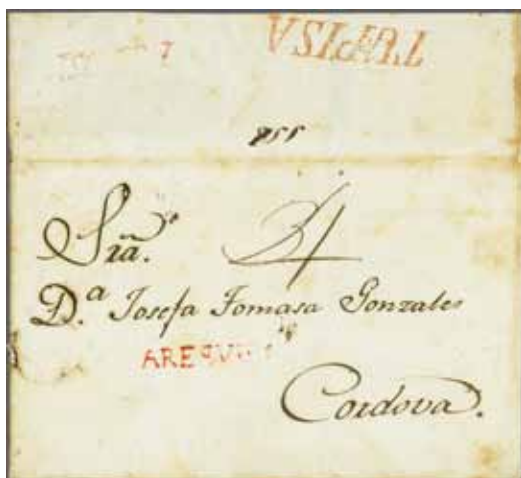 TUPISA
Sra.
D.ª Josefa Tomasa Gonzales
AREQUIPA
Cordova.